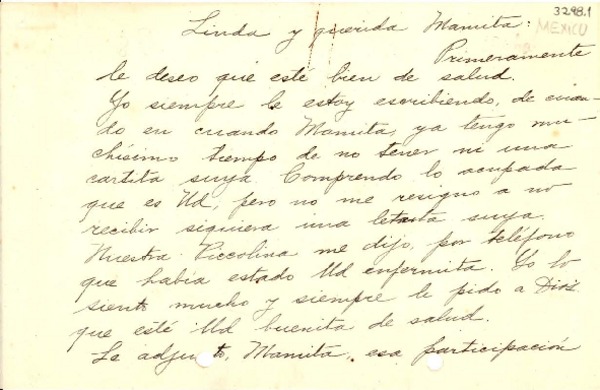 3298.1
MEXICO
Linda y querida Mamita:
Primeramente
le deseo que esté bien de salud.
Yo siempre le estoy escribiendo, de cuan-
do en cuando Mamita, ya tengo mu-
chísimo tiempo de no tener ni una
cartita suya. Comprendo lo ocupada
que es Ud, pero no me resigno a no
recibir siquiera una letrita suya.
Nuestra Piccolina me dijo, por teléfono
que había estado Ud enfermita. Yo lo
siento mucho y siempre le pido a Diós
que esté Ud buenita de salud.
Le adjunto, Mamita, esa participación